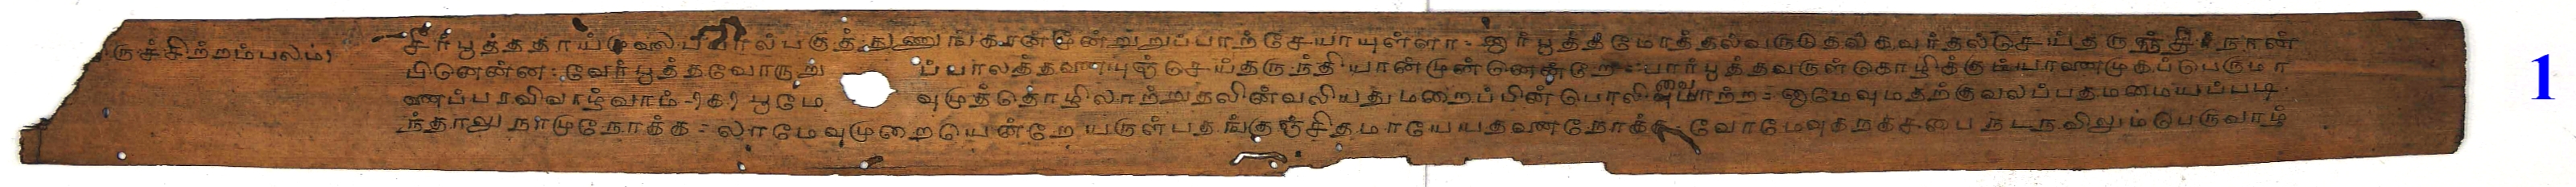 ருச்சிற்றம்பலம்
சீர்பூத்ததாய் பகுத் நுணுங்கான்மூன்றுறுப்பாற்செயாயுள்ளா ஓர்பூத்த மொத்தல்வருடுதல்கவர்தல்செய்தருஞ்சீர்நான்
பினென்ன வேர்பூத்தவோருறு ப்பாலத்தனையுஞ்செய்தருந்தியான்முன்னென்றே பார்பூத்தவருள்கொழிக்கும்யானைமுகப்பெருமா
னைப்பரவிவாழ்வாம் க பூமே வுமுத்தொழிலாற்றுதலின்வலியதுமறைப்பின் பொலி மாற்ற ஓமேவுமதற்குவலப்பதமமையப்படி
ந்தாலுநாமுநோக்க லாமேவுமுறையென்றே யருள்பதங்குஞ்சிதமாயேயதனைநோக்க வோமேவுகநகசபை நடநவிலும்பெருவாழ்
1